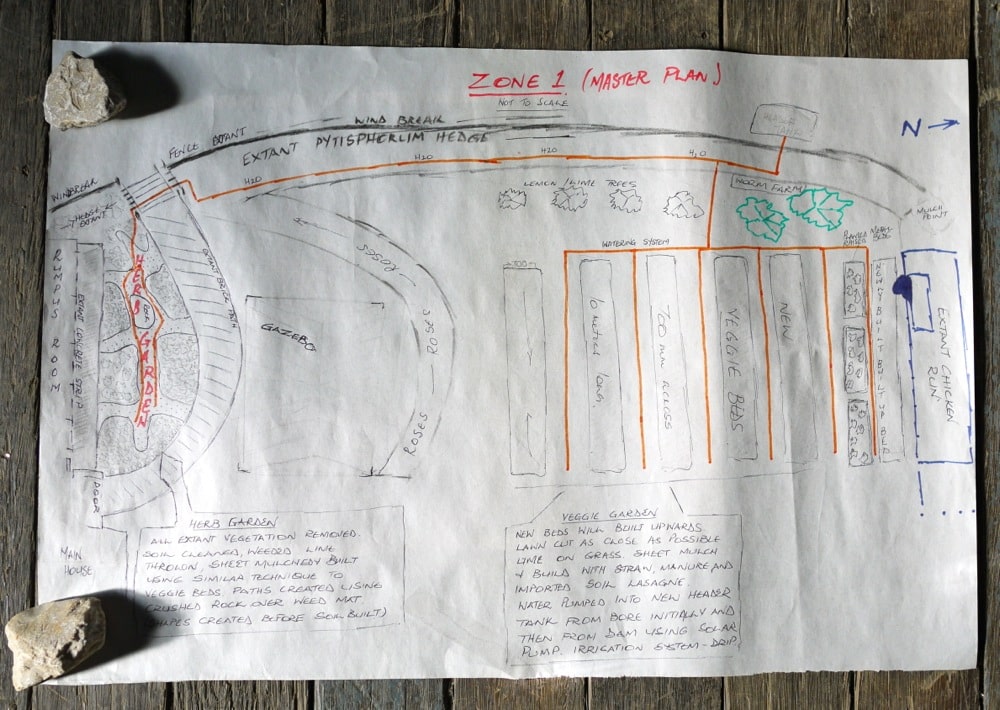 ZONE 1 (MASTER PLAN)
NOT TO SCALE
N
WIND BREAK
FENCE EXTANT
EXTANT PYTISPHERLIM HEDGE
H2O
H2O
H2O
H2O
WINDBREAK
HEDGE
EXTANT
LEMON/LIME TREES
WORM FARM
MULCH
POINT
WATERING SYSTEM
RAISED
RUMPUS ROOM
EXTANT CONCRETE STRIP
HERB GARDEN
EXTANT BRICK PATH
GAZEBO
ROSES
ROSES
ROSES
10 metres long
700 mm across
VEGGIE BEDS
NEW
NEWLY BUILT BUILT UP BED
EXTANT CHICKEN
RUN
DOOR
MAIN
HOUSE
HERB GARDEN
ALL EXTANT VEGETATION REMOVED.
SOIL CLEANED, WEEDED LIME
THROWN, SHEET MULCHEDY BUILT
USING SIMILAA TECHNIQUE TO
VEGGIE BEDS. PATHS CREATED USING
CRUSHED ROCK OVER WEED MAT.
(SHAPES CREATED BEFORE SOIL BUILT)
VEGGIE GARDEN
NEW BEDS WILL BUILT UPWARDS
LAWN CUT AS CLOSE AS POSSIBLE
LIME ON GRASS. SHEET MULCH
& BUILD WITH STRAW, MANURE AND
IMPORTED SOIL LASAGNE.
WATER PUMPED INTO NEW HEADER
TANK FROM BORE INITIALLY AND
THEN FROM DAM USING SOLAR
PUMP. IRRIGATION SYSTEM-DRIP.